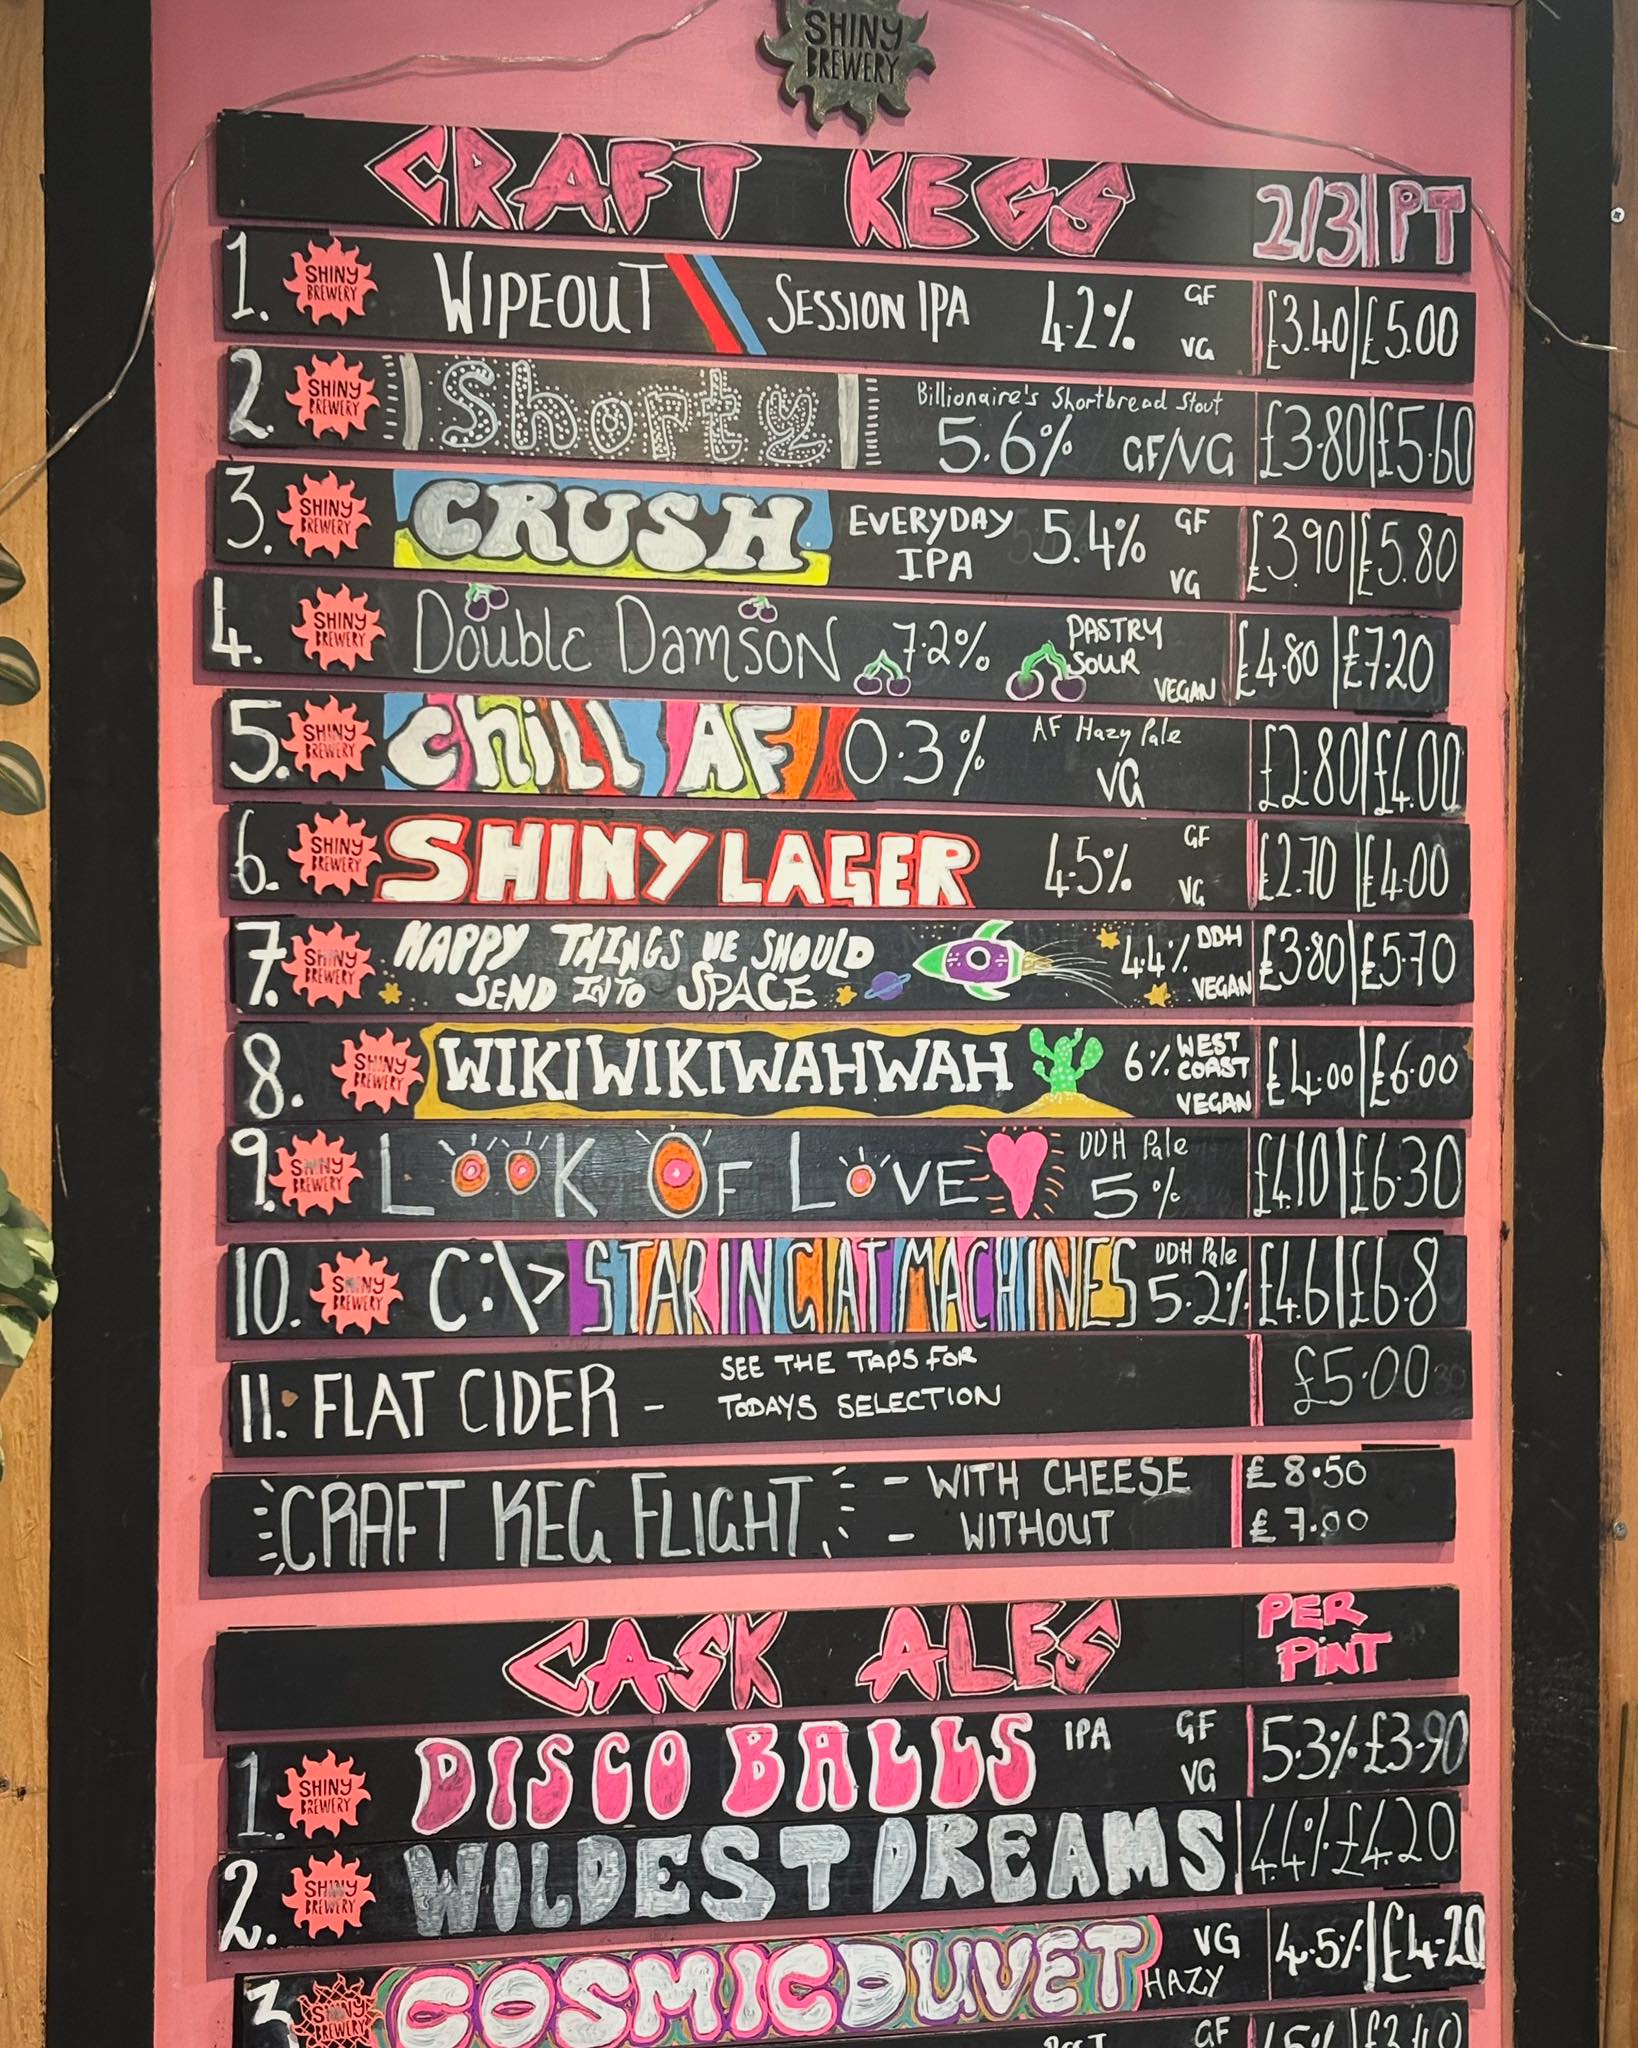 SHINY
BREWERY
CRAFT KEGS 2/3 | PT
1. SHINY BREWERY WIPEOUT SESSION IPA 4.2% GF VG £3.40 | £5.00
2. SHINY BREWERY Shorty Billionaire's Shortbread Stout 5.6% GF/VG £3.80 | £5.60
3. SHINY BREWERY CRUSH EVERYDAY IPA 5.4% GF VG £3.90 | £5.80
4. SHINY BREWERY Double Damson 7.2% PASTRY SOUR VEGAN £4.80 | £7.20
5. SHINY BREWERY Chill AF 0.3% AF Hazy Pale VG £2.80 | £4.00
6. SHINY BREWERY SHINY LAGER 4.5% GF VG £2.70 | £4.00
7. SHINY BREWERY HAPPY THINGS WE SHOULD SEND INTO SPACE 4.4% DDH VEGAN £3.80 | £5.70
8. SHINY BREWERY WIKIWIKIWAHWAH 6% WEST COAST VEGAN £4.00 | £6.00
9. SHINY BREWERY LOOK OF LOVE DDH Pale 5% £4.10 | £6.30
10. SHINY BREWERY C:\> STARING AT MACHINES DDH Pale 5.2% £4.6 | £6.8
11. FLAT CIDER - SEE THE TAPS FOR TODAYS SELECTION £5.00
CRAFT KEG FLIGHT - WITH CHEESE £8.50
- WITHOUT £7.00
CASK ALES PER PINT
1. SHINY BREWERY DISCO BALLS IPA GF VG 5.3% £3.90
2. SHINY BREWERY WILDEST DREAMS 4.4% £4.20
3. SHINY BREWERY COSMIC DUVET VG HAZY 4.5% | £4.20
GF